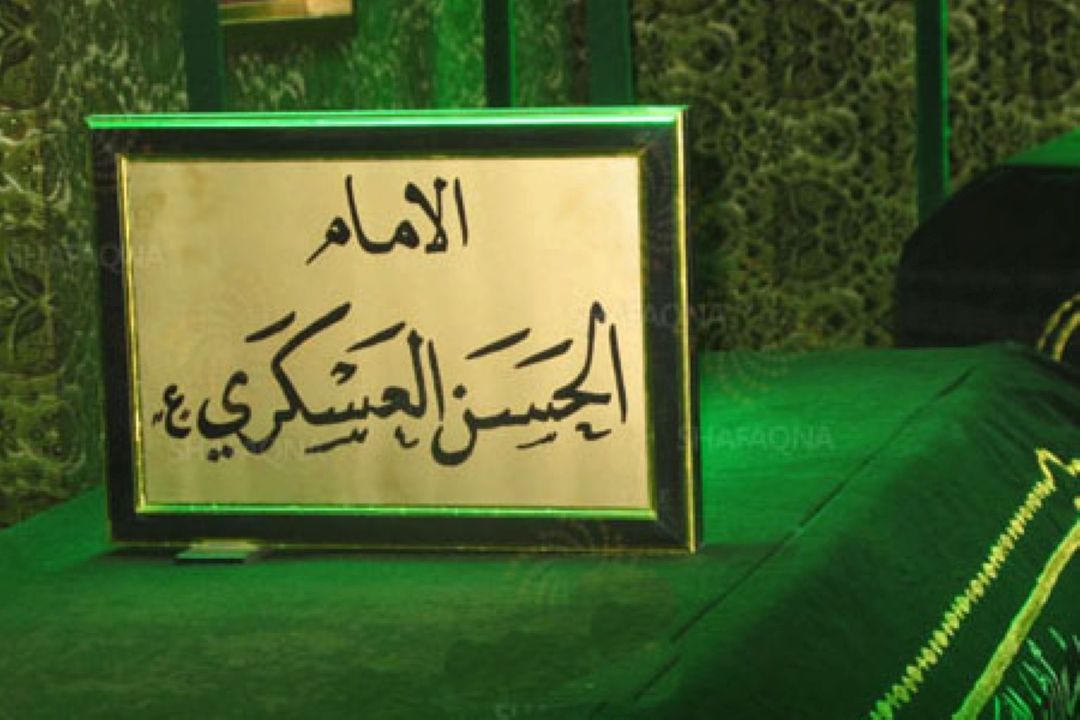 الامام
الحسن العسكري ع
SHAFAQNA
SHAFAQNA
SHAFAQNA
SHAFAQNA